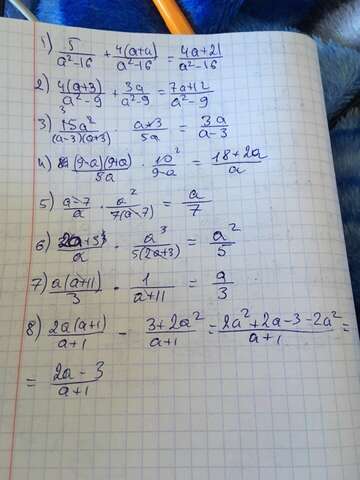 1) 5/(a²-16) + 4(a+4)/(a²-16) = (4a+21)/(a²-16)
2) 4(a+3)/(a²-9) + 3a/(a²-9) = (7a+12)/(a²-9)
3) 15a²/((a-3)(a+3)) · (a+3)/5a = 3a/(a-3)
4) (9-a)(9+a)/5a · 10²/(9-a) = (18+2a)/a
5) (a-7)/a · a²/(7(a-7)) = a/7
6) a³/(5(2a+3)) = a²/5
7) a(a+11)/3 · 1/(a+11) = a/3
8) 2a(a+1)/(a+1) - (3+2a²)/(a+1) = (2a²+2a-3-2a²)/(a+1) =
= (2a-3)/(a+1)